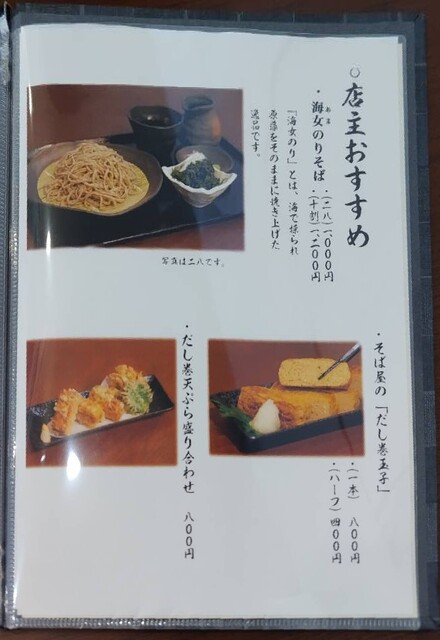 ○店主おすすめ
・海女のりそば
あま
・(二八)一、000円
・(十割)一、二00円
『海女のり』とは、海で採られ
原藻をそのままに焼き上げた
逸品です。
写真は二八です。
・そば屋の「だし巻玉子」
・(一本) 八00円
・(ハーフ) 四00円
・だし巻天ぷら盛り合わせ 八00円